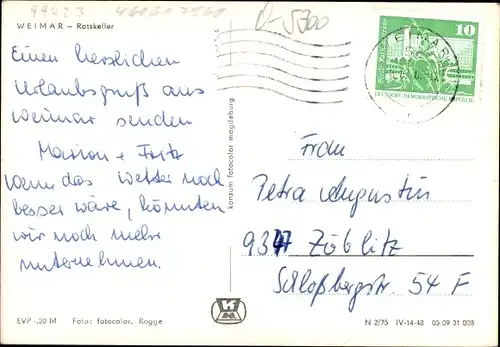 99423 4606 02560 D-5300
WEIMAR – Ratskeller
Einen herzlichen
Urlaubsgruß aus
Weimar senden
Marion + Fritz
wenn das Wetter noch
besser wäre, könnten
wir noch mehr
unternehmen.
EVP -,20 M Foto: fotocolor, Rogge
konsum fotocolor magdeburg
10
DEUTSCHE DEMOKRATISCHE REPUBLIK
Frau
Petra Augustin
9347 Zöblitz
Schloßbergstr. 54 F
N 2/75 IV-14-48 05 09 31 028